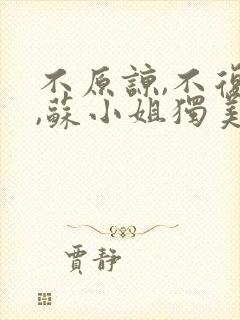 不原諒,不復
,蘇小姐獨美
賈靜